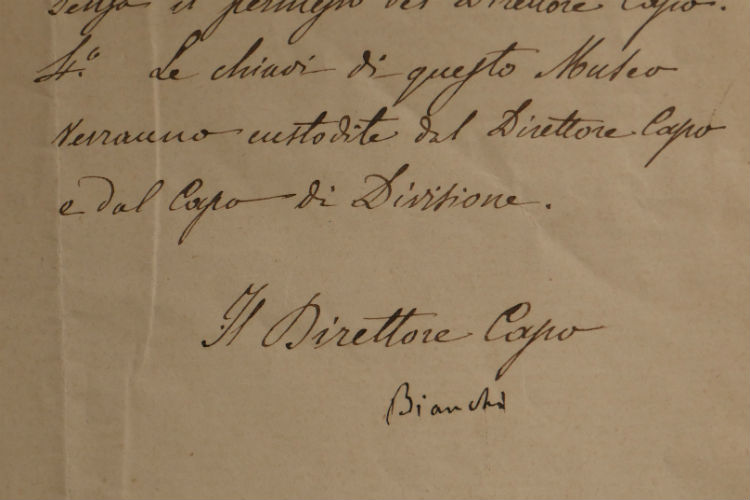 senza il permesso del Direttore Capo.
4.° Le chiavi di questo Museo
verranno custodite dal Direttore Capo
e dal Capo di Divisione.
Il Direttore Capo
Bianchi